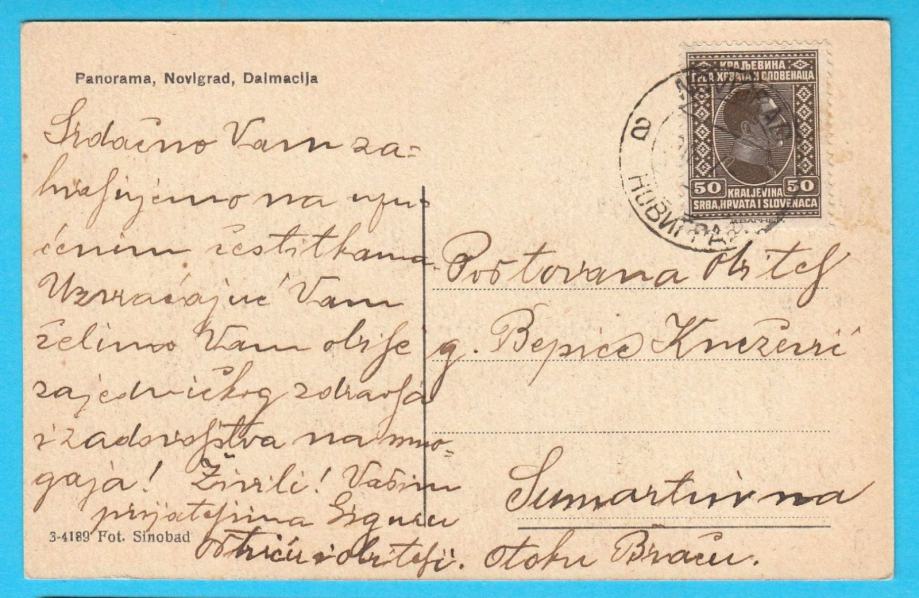 Panorama, Novigrad, Dalmacija
Srdačno Vam za=
hvaljujemo na upu=
ćenim čestitkama.
Uzvraćajuć Vam
želimo Vam obilje
zajedničkog zdravlja
i zadovoljstva na mno=
gaja! Živili! Vašim
prijateljima
i obitelji.
3-4189 Fot. Sinobad
КРАЉЕВИНА
СРБА, ХРВАТА И СЛОВЕНАЦА
50 50
KRALJEVINA
SRBA, HRVATA I SLOVENACA
НОВИГРАД
Poštovana Obitelj
g. Bepice Knežević
Sumartin na
otoku Braču.